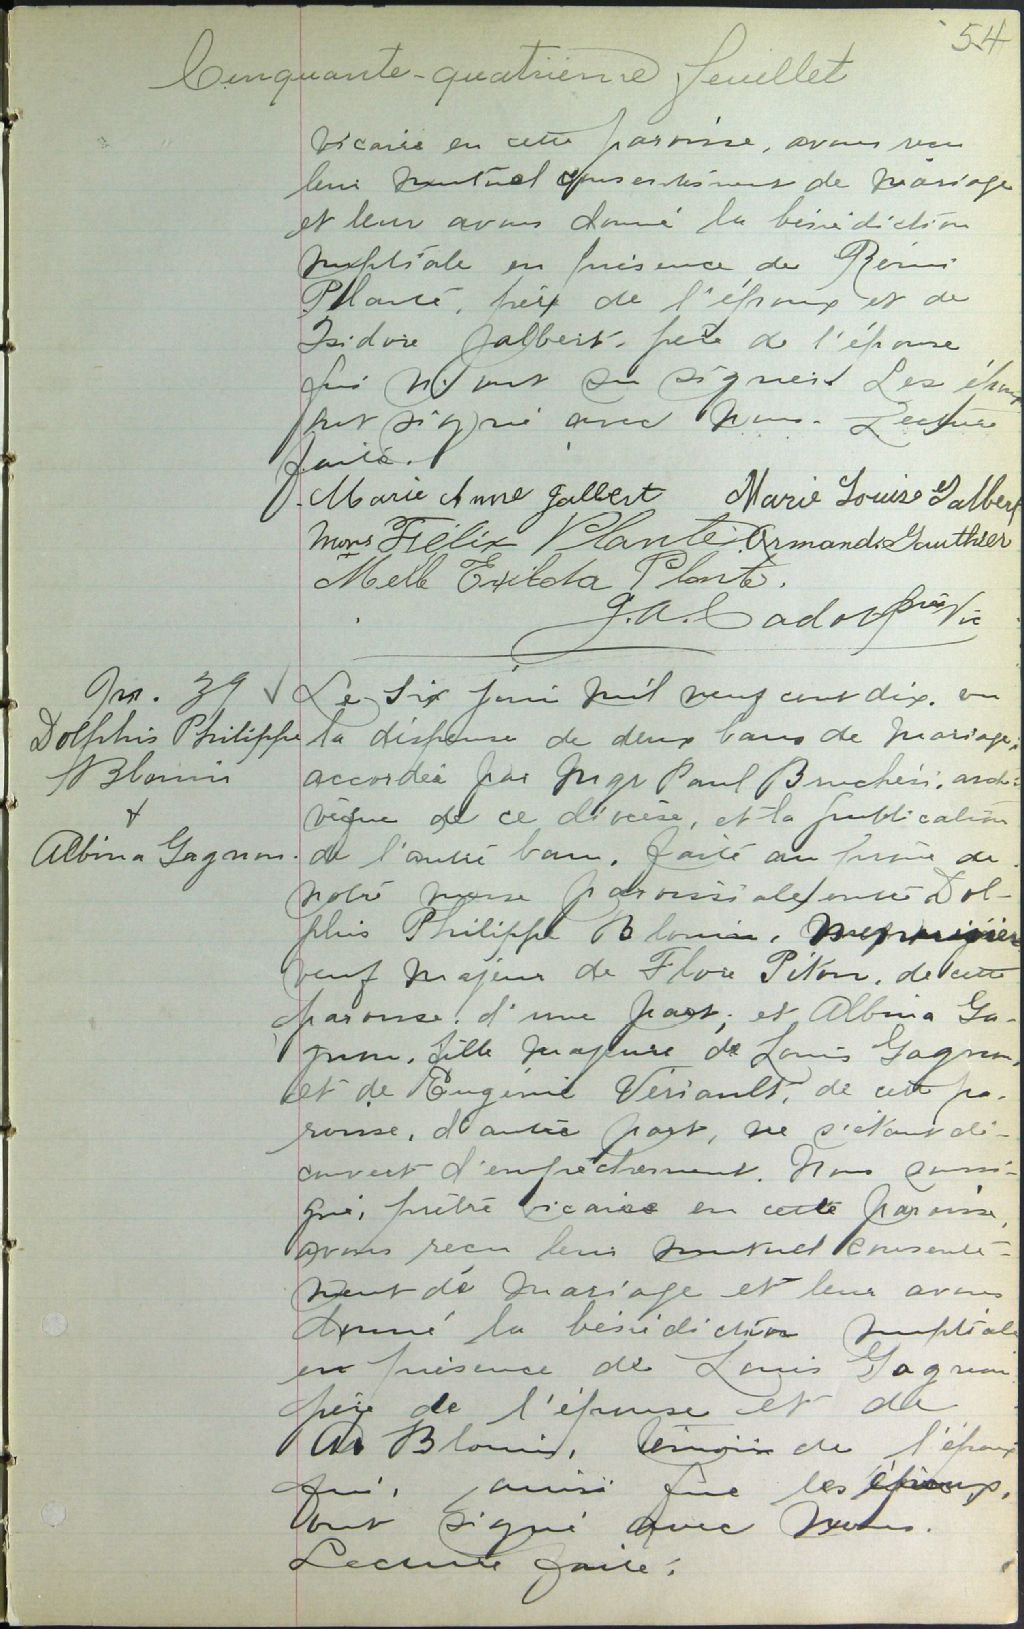 54
Cinquante-quatrième feuillet
vicaire en cette paroisse, avons reçu
leur mutuel consentement de mariage
et leur avons donné la bénédiction
nuptiale en présence de Rémi
Planté, père de l'époux et de
Isidore Jalbert, père de l'épouse
qui n'ont su signer. Les époux
ont signé avec nous. Lecture
faite.
Marie Anne Jalbert Marie Louise Jalbert
Mons Félix Plante Armand Gauthier
Melle Exilda Plante.
J.A. Cadot ptre Vic
M. 39 Le six juin mil neuf cent dix, vu
Dolphis Philippe la dispense de deux bans de mariage,
Blouin accordée par Mgr Paul Bruchési, arche-
& vêque de ce diocèse, et la publication
Albina Gagnon. de l'autre ban, faite au prône de
notre messe paroissiale, entre Dol-
phis Philippe Blouin, menuisier
veuf majeur de Flore Piton, de cette
paroisse, d'une part, et Albina Ga-
gnon, fille majeure de Louis Gagnon,
et de Eugénie Vériault, de cette pa-
roisse, d'autre part, ne s'étant dé-
couvert d'empêchement. Nous soussi-
gné, prêtre vicaire en cette paroisse,
avons reçu leur mutuel consente-
ment de mariage et leur avons
donné la bénédiction nuptiale
en présence de Louis Gagnon
père de l'épouse et de
Blouin, témoin de l'époux
qui, ainsi que les époux,
ont signé avec nous.
Lecture faite.